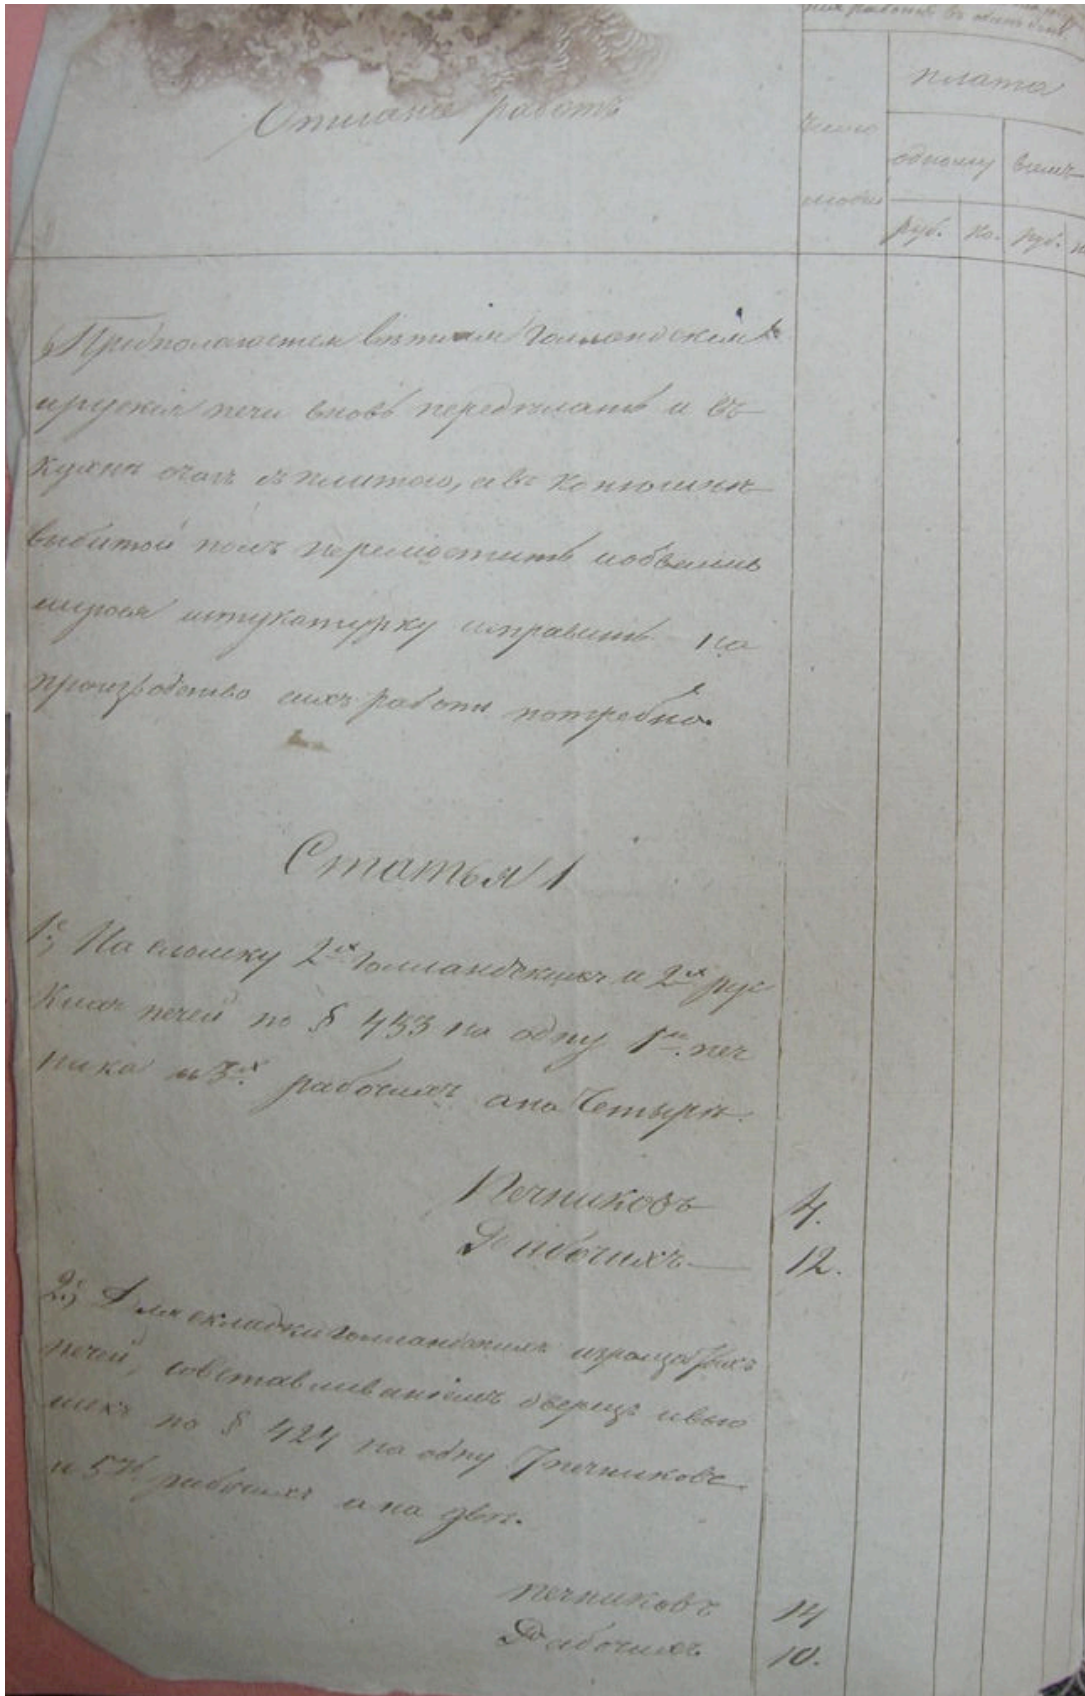 работъ въ
Описание работъ
Число
людей
плата
одному
всемъ
руб.
ко.
руб.
Предполагается ветхия Голландския
ируския печи вновь переделать и въ
кухне очагъ съ плитою, авъ конюшни
выбитой полъ перемостить иобвалив
шуюся штукатурку исправить на
производство сихъ работъ потребно.
Статья 1
1е, На сломку 2хъ Голландскихъ и 2хъ рус
кихъ печей по § 433 на одну 1го печ
ника и 3хъ рабочихъ ана Четыре.
Печниковъ 4.
Рабочихъ 12.
2е, Для складки Голландскихъ изразцовыхъ
печей, совставливаниемъ дверецъ ивью
шикъ по § 424 на одну 7 печниковъ
и 5ть рабочихъ ана две.
печниковъ 14
Рабочихъ 10.